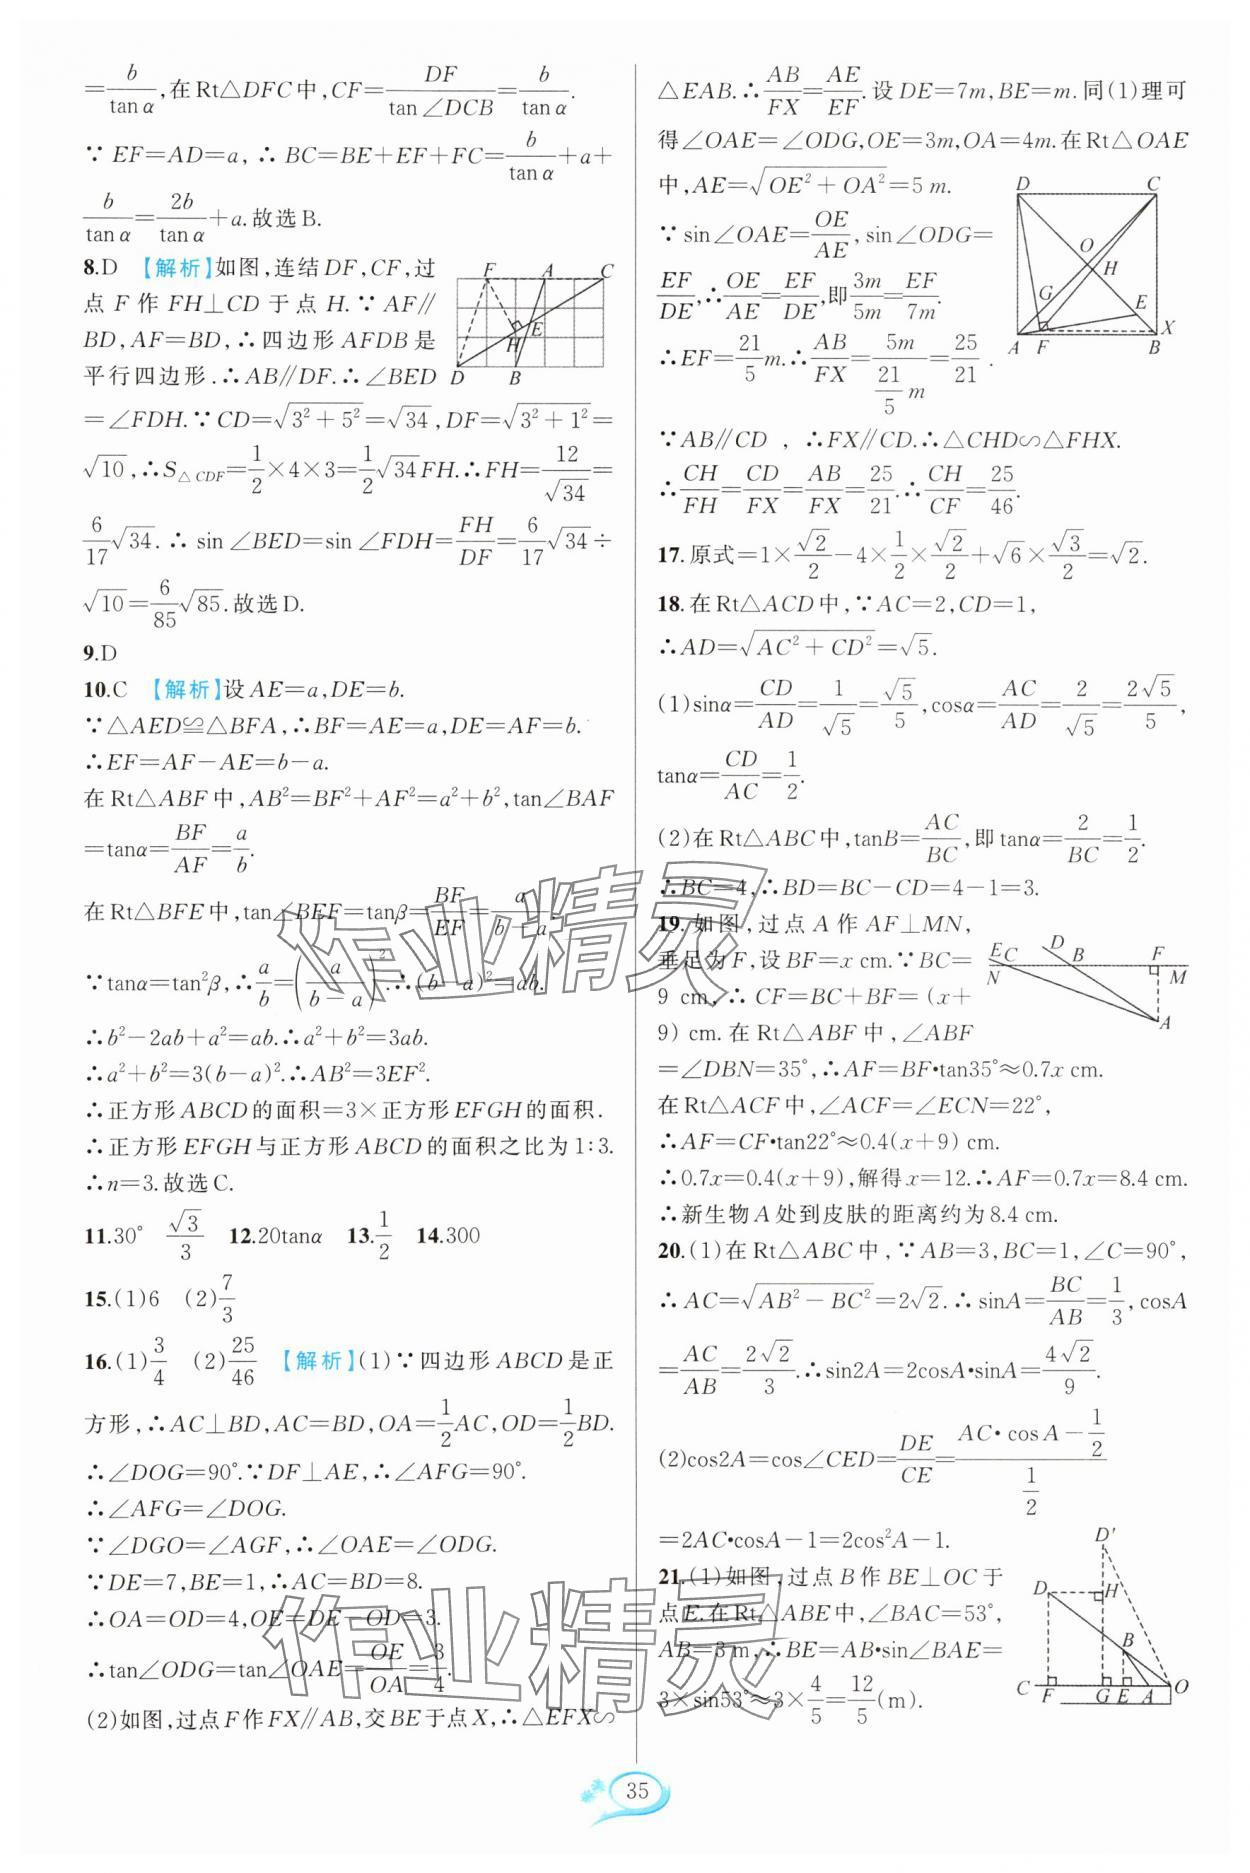 =b/tanα,在Rt△DFC中,CF=DF/tan∠DCB=b/tanα.
∵EF=AD=a,∴BC=BE+EF+FC=b/tanα+a+
b/tanα=2b/tanα+a.故选B.
8.D 【解析】如图,连结DF,CF,过
点F作FH⊥CD于点H.∵AF∥
BD,AF=BD,∴四边形AFDB是
平行四边形.∴AB∥DF.∴∠BED
=∠FDH.∵CD=√(3²+5²)=√34,DF=√(3²+1²)=
√10,∴S△CDF=1/2×4×3=1/2√34FH.∴FH=12/√34=
6/17√34.∴sin∠BED=sin∠FDH=FH/DF=6/17√34÷
√10=6/85√85.故选D.
F A C
E
H
D B
9.D
10.C 【解析】设AE=a,DE=b.
∵△AED≌△BFA,∴BF=AE=a,DE=AF=b.
∴EF=AF-AE=b-a.
在Rt△ABF中,AB²=BF²+AF²=a²+b²,tan∠BAF
=tanα=BF/AF=a/b.
在Rt△BFE中,tan∠BEF=tanβ=BF/EF=a/(b-a).
∵tanα=tan²β,∴a/b=(a/(b-a))².∴(b-a)²=ab.
∴b²-2ab+a²=ab.∴a²+b²=3ab.
∴a²+b²=3(b-a)².∴AB²=3EF².
∴正方形ABCD的面积=3×正方形EFGH的面积.
∴正方形EFGH与正方形ABCD的面积之比为1∶3.
∴n=3.故选C.
11.30° √3/3 12.20tanα 13.1/2 14.300
15.(1)6 (2)7/3
16.(1)3/4 (2)25/46 【解析】(1)∵四边形ABCD是正
方形,∴AC⊥BD,AC=BD,OA=1/2AC,OD=1/2BD.
∴∠DOG=90°.∵DF⊥AE,∴∠AFG=90°.
∴∠AFG=∠DOG.
∵∠DGO=∠AGF,∴∠OAE=∠ODG.
∵DE=7,BE=1,∴AC=BD=8.
∴OA=OD=4,OE=DE-OD=3.
∴tan∠ODG=tan∠OAE=OE/OA=3/4.
(2)如图,过点F作FX∥AB,交BE于点X,∴△EFX∽
△EAB.∴AB/FX=AE/EF.设DE=7m,BE=m.同(1)理可
得∠OAE=∠ODG,OE=3m,OA=4m.在Rt△OAE
中,AE=√(OE²+OA²)=5m.
∵sin∠OAE=OE/AE,sin∠ODG=
EF/DE,∴OE/AE=EF/DE,即3m/5m=EF/7m.
∴EF=21/5m.∴AB/FX=5m/(21/5m)=25/21.
D C
O
H
G
E
X
A F B
∵AB∥CD,∴FX∥CD.∴△CHD∽△FHX.
∴CH/FH=CD/FX=AB/FX=25/21.∴CH/CF=25/46.
17.原式=1×√2/2-4×1/2×√2/2+√6×√3/2=√2.
18.在Rt△ACD中,∵AC=2,CD=1,
∴AD=√(AC²+CD²)=√5.
(1)sinα=CD/AD=1/√5=√5/5,cosα=AC/AD=2/√5=2√5/5,
tanα=CD/AC=1/2.
(2)在Rt△ABC中,tanB=AC/BC,即tanα=2/BC=1/2.
∴BC=4,∴BD=BC-CD=4-1=3.
19.如图,过点A作AF⊥MN,
垂足为F,设BF=x cm.∵BC=
9 cm,∴CF=BC+BF=(x+
9) cm.在Rt△ABF中,∠ABF
E C D B F
N M
A
=∠DBN=35°,∴AF=BF•tan35°≈0.7x cm.
在Rt△ACF中,∠ACF=∠ECN=22°,
∴AF=CF•tan22°≈0.4(x+9) cm.
∴0.7x=0.4(x+9),解得x=12.∴AF=0.7x=8.4 cm.
∴新生物A处到皮肤的距离约为8.4 cm.
20.(1)在Rt△ABC中,∵AB=3,BC=1,∠C=90°,
∴AC=√(AB²-BC²)=2√2.∴sinA=BC/AB=1/3,cosA
=AC/AB=2√2/3.∴sin2A=2cosA•sinA=4√2/9.
(2)cos2A=cos∠CED=DE/CE=(AC•cosA-1/2)/(1/2)
=2AC•cosA-1=2cos²A-1.
21.(1)如图,过点B作BE⊥OC于
点E.在Rt△ABE中,∠BAC=53°,
AB=3 m,∴BE=AB•sin∠BAE=
3×sin53°≈3×4/5=12/5(m).
D′
D H
B
C F G E A O
作业精灵
作业精灵
35